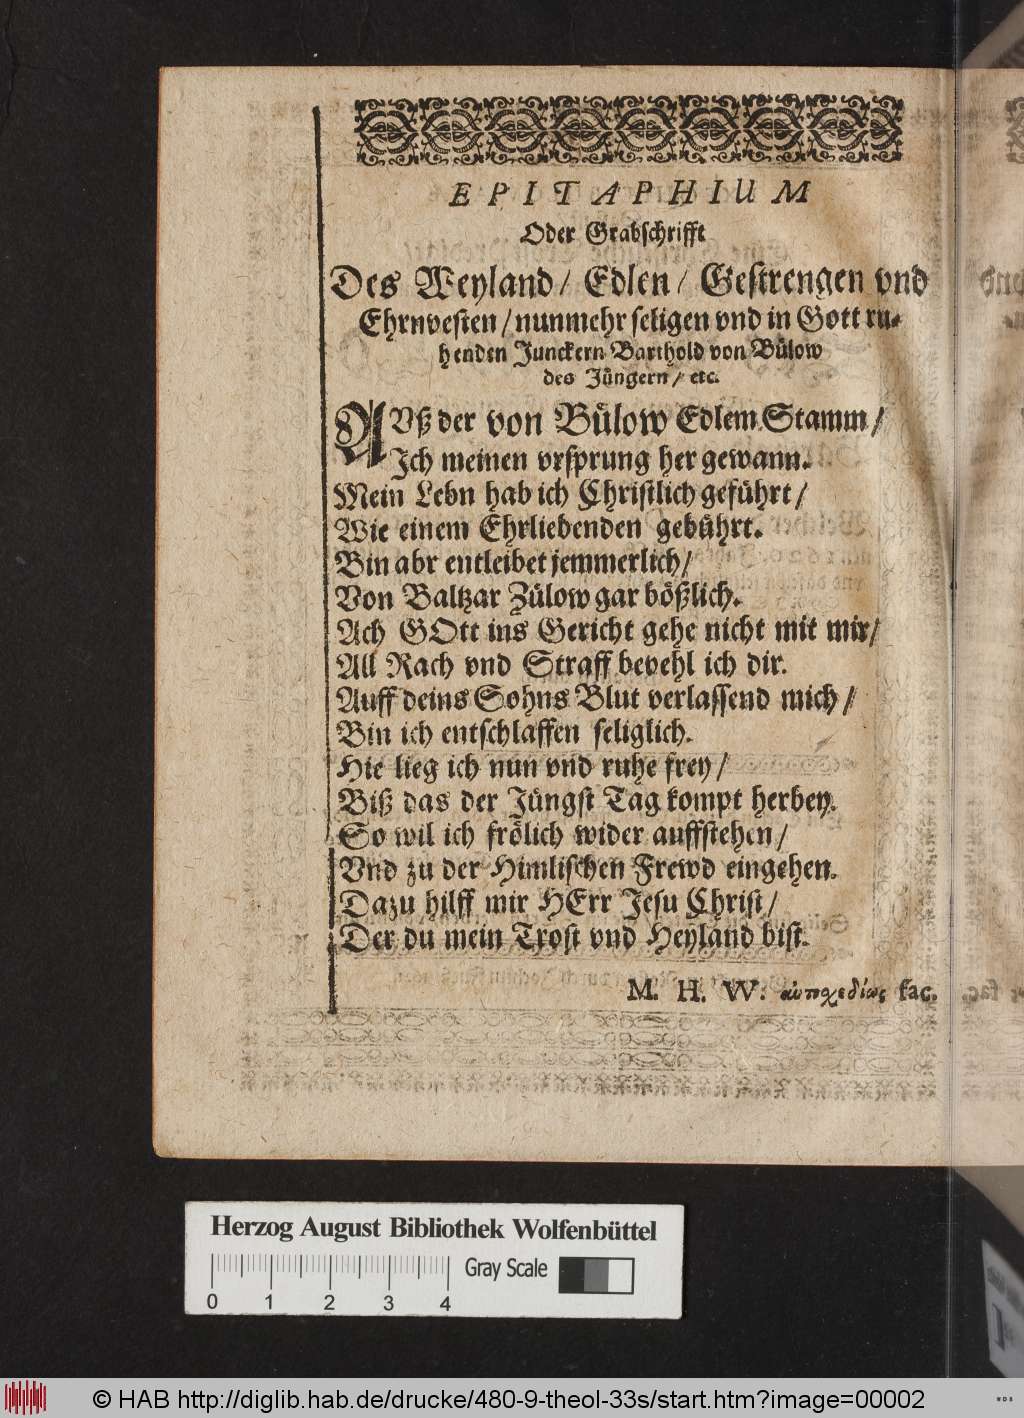 EPITAPHIUM
Oder Grabschrifft
Des Weyland / Edlen / Gestrengen vnd
Ehrnvesten / nunmehr seligen vnd in Gott ru-
henden Junckern Barthold von Bülow
des Jüngern / etc.
AVß der von Bülow Edlem Stamm /
Ich meinen vrsprung her gewann.
Mein Lebn hab ich Christlich geführt /
Wie einem Ehrliebenden gebührt.
Bin abr entleibet jemmerlich /
Von Baltzar Zülow gar bößlich.
Ach GOtt ins Gericht gehe nicht mit mir /
All Rach vnd Straff bevehl ich dir.
Auff deins Sohns Blut verlassend mich /
Bin ich entschlaffen seliglich.
Hie lieg ich nun vnd ruhe frey /
Biß das der Jüngst Tag kompt herbey.
So wil ich frölich wider auffstehen /
Vnd zu der Himlischen Frewd eingehen.
Dazu hilff mir HErr Jesu Christ /
Der du mein Trost vnd Heyland bist.
M. H. W. fac.
Herzog August Bibliothek Wolfenbüttel
Gray Scale
0 1 2 3 4
© HAB http://diglib.hab.de/drucke/480-9-theol-33s/start.htm?image=00002